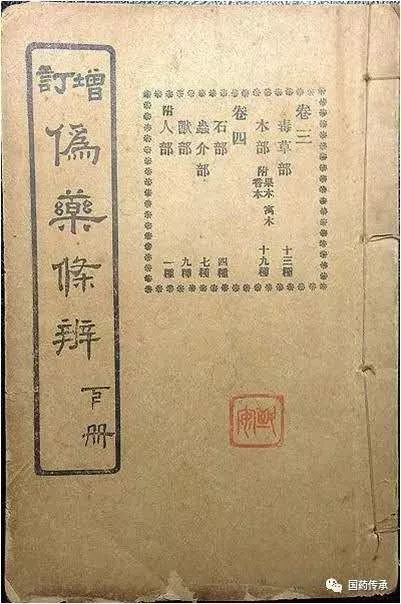 增訂
偽藥條辨
下册
卷三
毒草部 十三種
木部 附 果木 香木 寓木 十九種
卷四
石部 四種
蟲介部 七種
獸部 九種
附人部 一種
国药传承